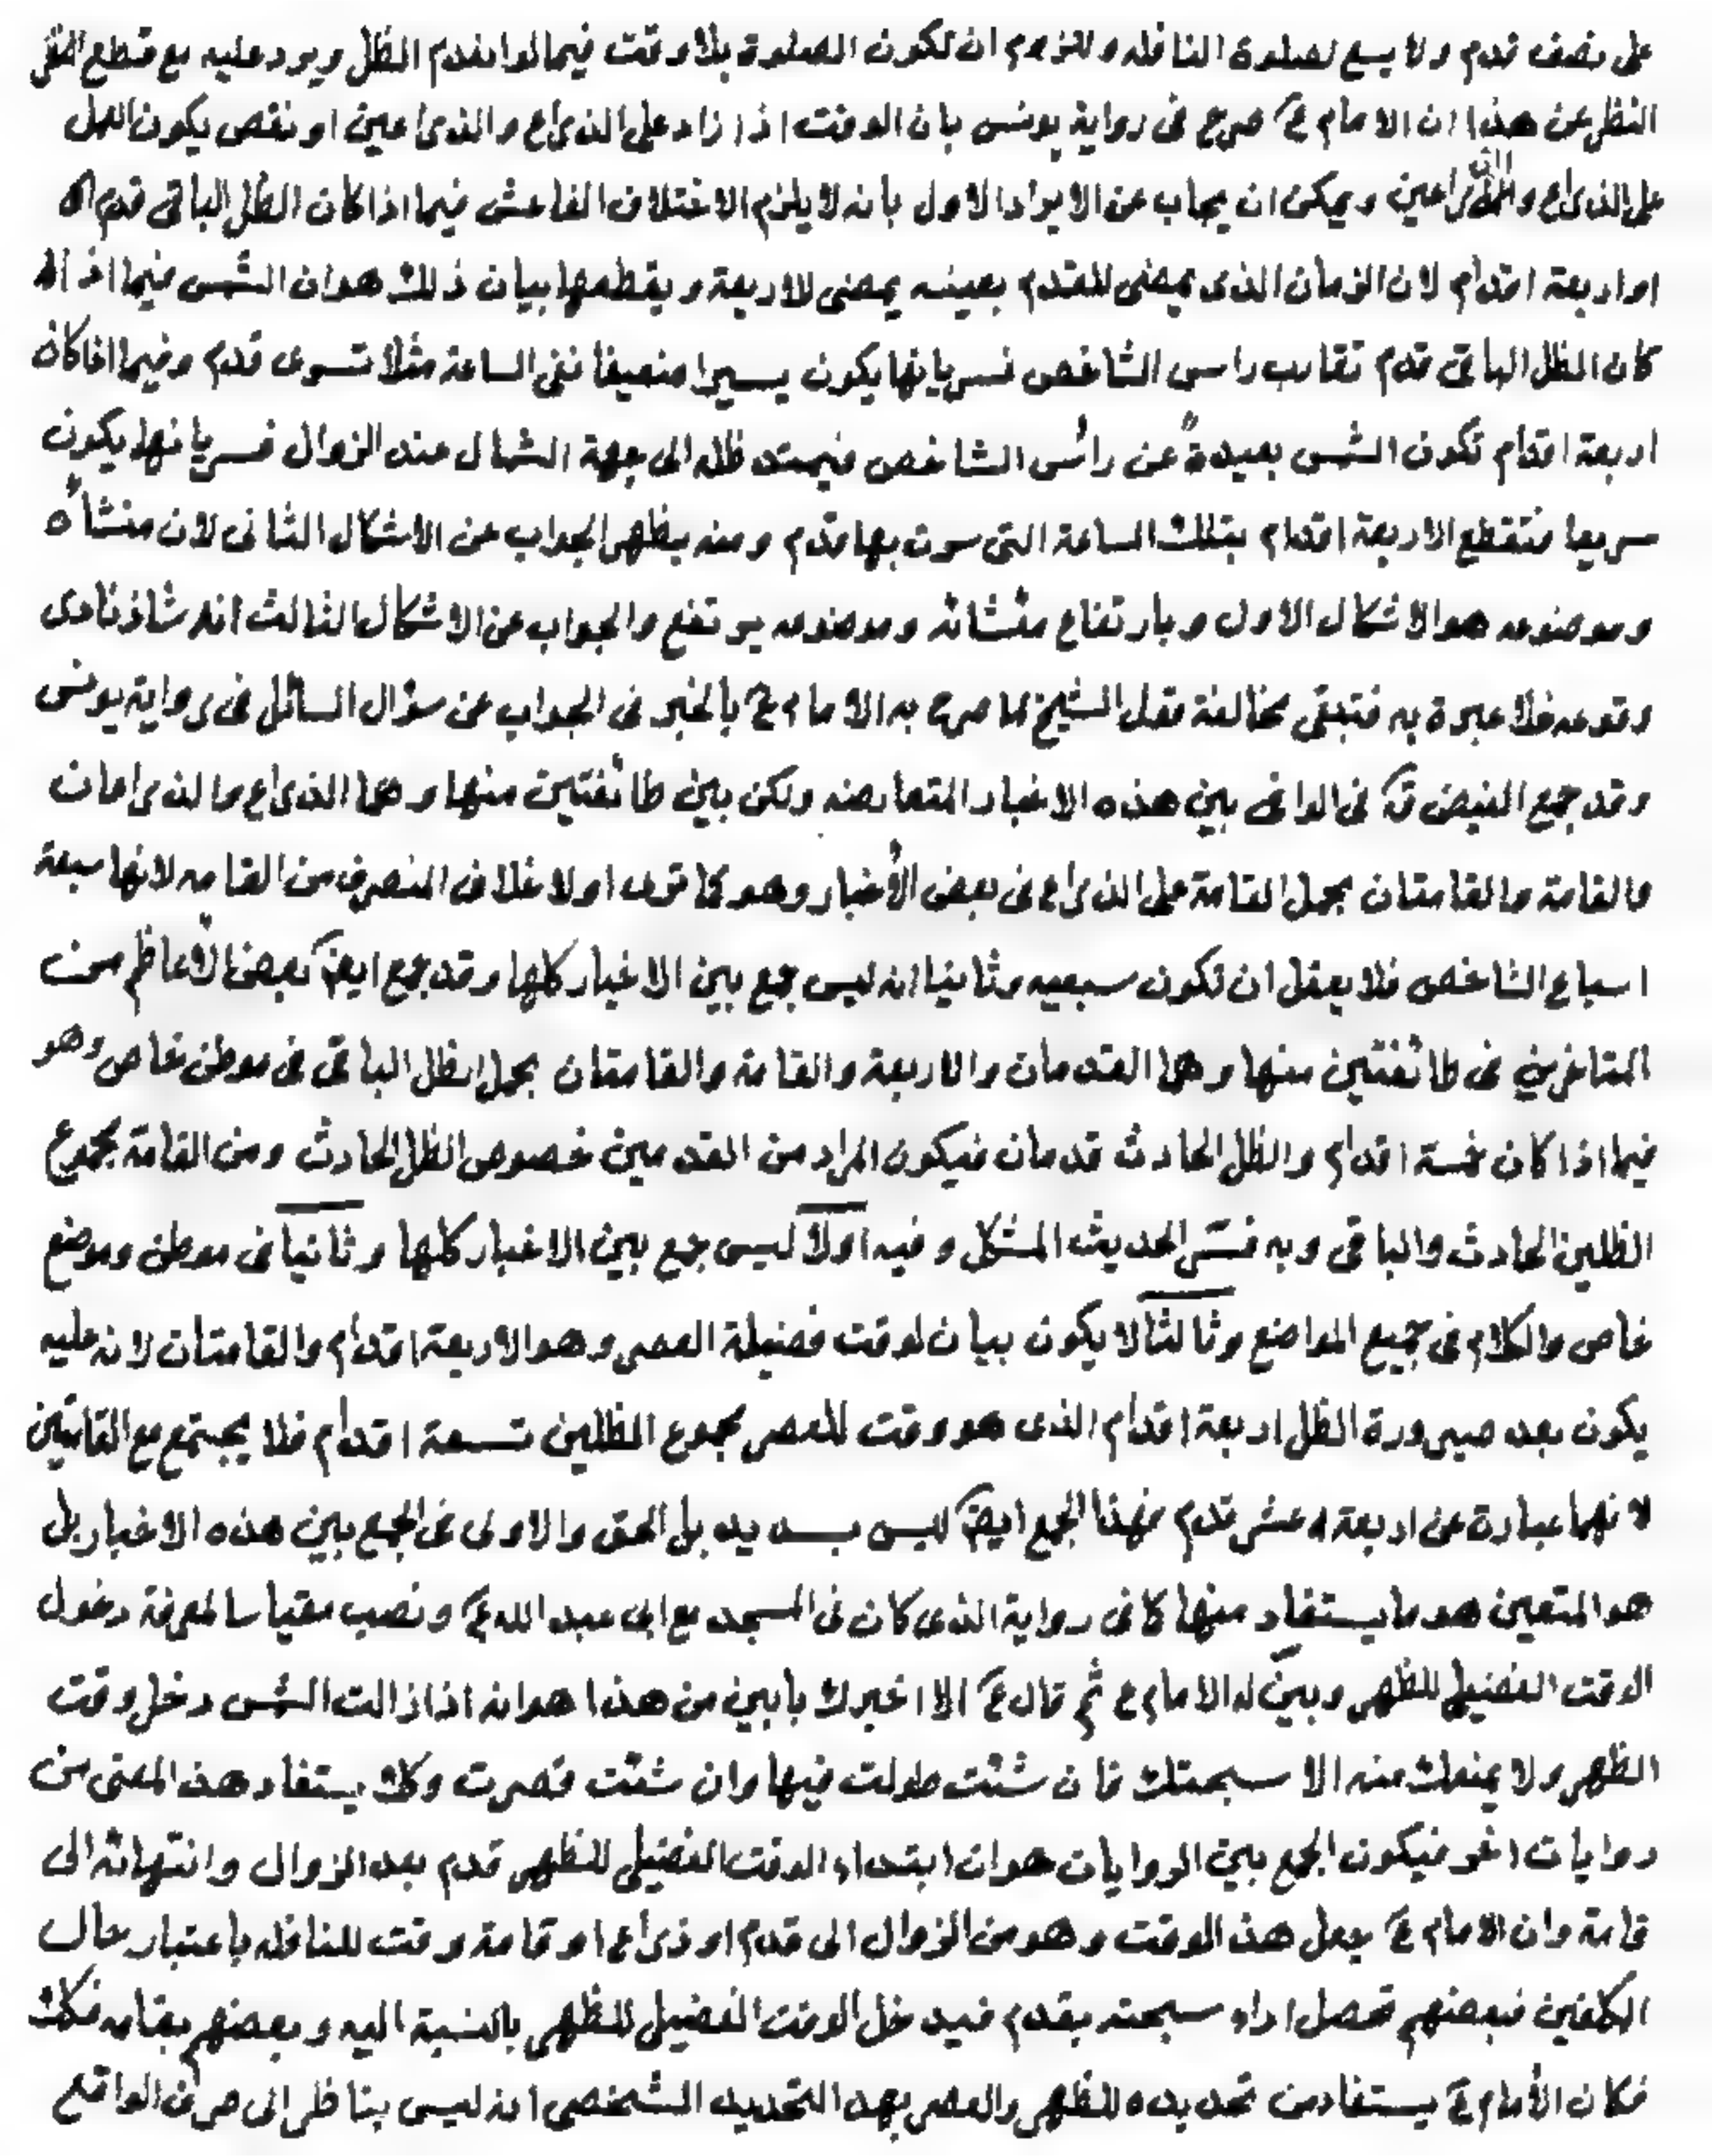 على نصف قدم ولا يسع لصلوة النافله وللزوم ان تكون الصلوة بلا وقت فيما لو انعدم الظل ويرد عليه مع قطع النظر
النظر عن هذا ان الامام ع صرح فى رواية يونس بان الوقت اذا زاد على الذراع والذراعين او نقص يكون العمل
على الذراع والذراعين ويمكن ان يجاب عن الايراد الاول بانه لا يلزم الاختلاف الفاحش فيما اذا كان الظل الباقى قدم
او اربعة اقدام لان الزمان الذى يمضى للقدم بعينه يمضى للاربعة ويقطعها بيان ذلك هو ان الشمس فيما اذا
كان الظل الباقى قدم تقارب راس الشاخص فسريانها يكون يسيرا ضعيفا ففى الساعة مثلا تسرى قدم وفيما اذا كان
اربعة اقدام تكون الشمس بعيدة عن رأس الشاخص فيمتد ظله الى جهة الشمال عند الزوال فسريانها يكون
سريعا فتقطع الاربعة اقدام بتلك الساعة التى سرت بها قدم ومنه يظهر الجواب عن الاشكال الثانى لان منشأه
وموضوعه هو الاشكال الاول وبارتفاع منشائه وموضوعه يرتفع والجواب عن الاشكال الثالث انه شاذ نادى
وقوعه فلا عبرة به فتبقى مخالفة مقل الشيخ لما صرح به الامام ع بالخبر فى الجواب عن سؤال السائل فى رواية يونس
وقد جمع الفيض قه فى الوافى بين هذه الاخبار المتعارضه ولكن بين طائفتين منها وهما الذراع والذراعان
والقامة والقامتان بحمل القامة على الذراع فى بعض الأخبار وهو كما ترى اولا خلاف المنصرف من القامه لانها سبعة
اسباع الشاخص فلا يعقل ان تكون سبعيه وثانيا انه ليس جمع بين الاخيار كلها وقد جمع ايضا بعض الأعاظم من
المتاخرين فى طائفتين منها وهما القدمان والاربعة والقامة والقامتان بحمل الظل الباقى فى موطن خاص وهو
فيما اذا كان خمسة اقدام والظل الحادث قدمان فيكون المراد من القدمين خصوص الظل الحادث ومن القامة مجموع
الظلين الحادث والباقى وبه فسّر الحديث المشكل وفيه اولا ليس جمع بين الاخبار كلها وثانيا فى موطن وموضع
خاص والكلام فى جميع المواضع وثالثا لا يكون بيان لوقت فضيلة العصر وهو الاربعة اقدام والقامتان لانه عليه
يكون بعد صيرورة الظل اربعة اقدام الذى هو وقت للعصر مجموع الظلين تسعة اقدام فلا يجتمع مع القامتين
لانهما عبارة عن اربعة عشر قدم فهذا الجمع ايضا ليس بسديد بل الحق والاولى فى الجمع بين هذه الاخبار بل
هو المتعين هو ما يستفاد منها كما فى رواية الذى كان فى المسجد مع ابى عبد الله ع ونصب مقياسا لمعرفة دخول
الوقت الفضيلى للظهر وبيّن له الامام ع ثم قال ع الا اخبرك بابين من هذا هو انه اذا زالت الشمس دخل وقت
الظهر ولا يمنعك منه الا سبحتك فان شئت طولت فيها وان شئت قصرت وكك يستفاد هذ المعنى من
روايات اخر فيكون الجمع بين الروايات هو ان ابتداء الوقت الفضيلى للظهر قدم بعد الزوال وانتهائه الى
قامة وان الامام ع جعل هذ الوقت وهو من الزوال الى قدم او ذراع او قامة وقت للنافله باعتبار حال
المكلفين فبعضهم تحصل اداء سبحته بقدم فيدخل الوقت الفضيلى للظهر بالنسبة اليه وبعضهم بقامه فكك
فكان الأمام ع يستفاد من تحديده للظهر والعصر بهد التحديد الشخصى انه ليس بناظر الى صرف الواقع